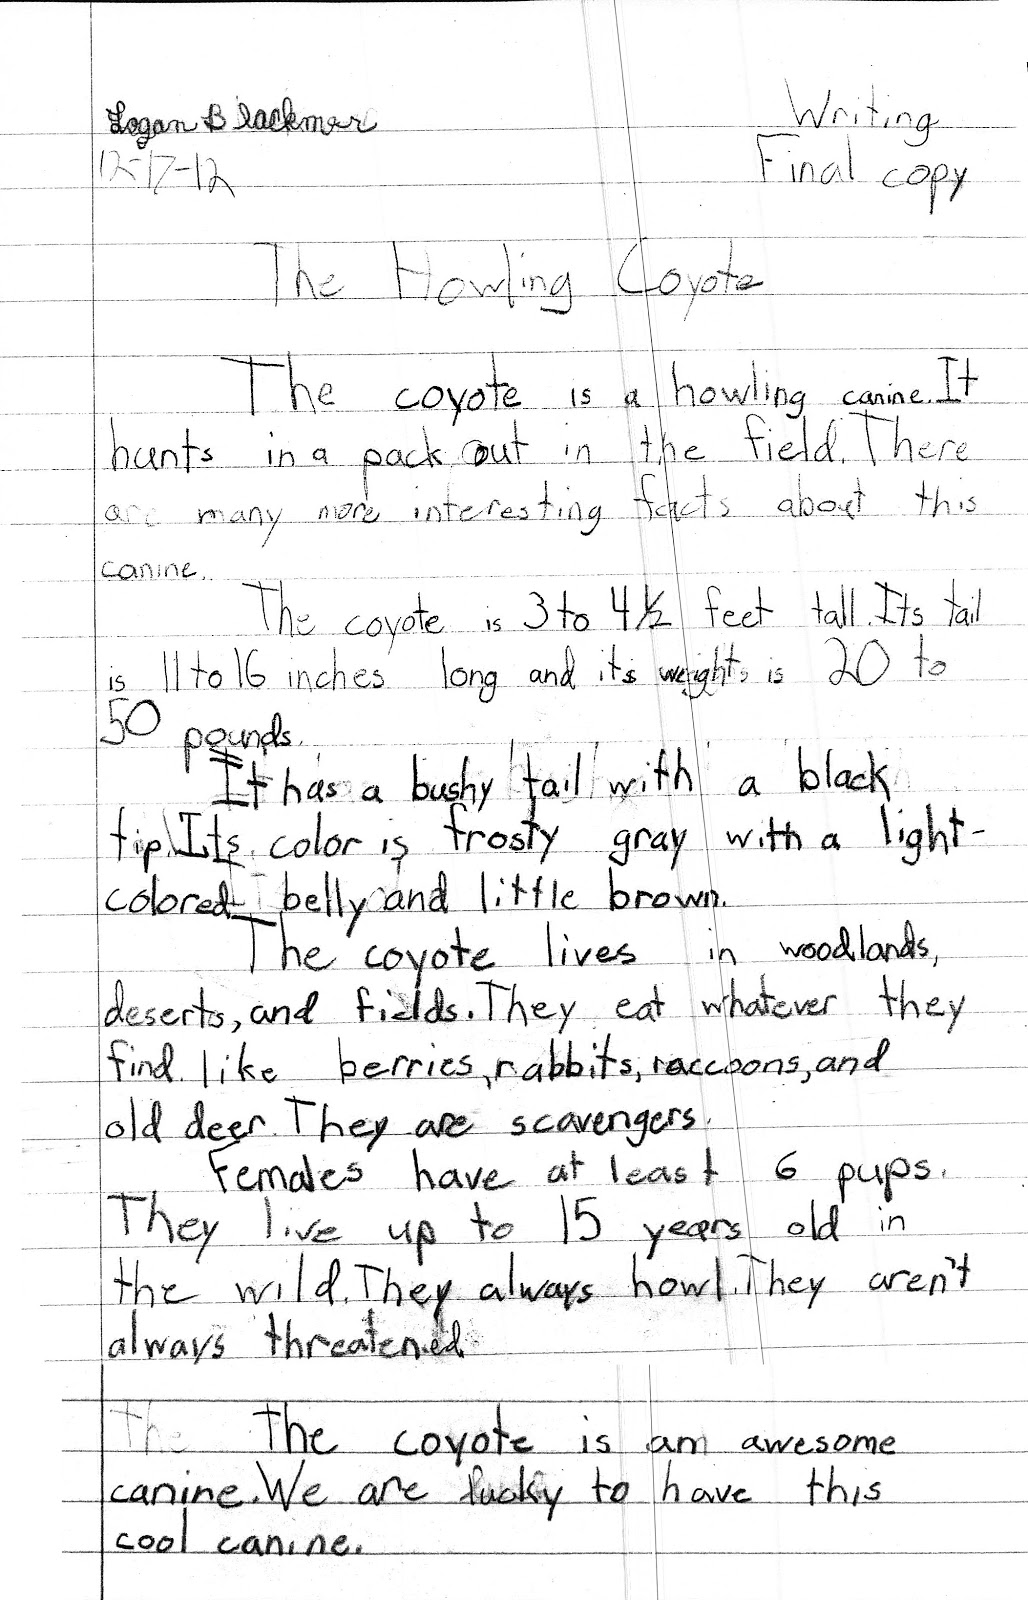 Logan Blackmer
Writing
12-17-12
Final copy
The Howling Coyote
The coyote is a howling canine. It
hunts in a pack out in the field. There
are many more interesting facts about this
canine.
The coyote is 3 to 4 1/2 feet tall. Its tail
is 11 to 16 inches long and its weights is 20 to
50 pounds.
It has a bushy tail with a black
tip. Its color is frosty gray with a light-
colored belly and little brown.
The coyote lives in woodlands,
deserts, and fields. They eat whatever they
find like berries, rabbits, raccoons, and
old deer. They are scavengers.
Females have at least 6 pups.
They live up to 15 years old in
the wild. They always howl. They aren't
always threatened.
The The coyote is am awesome
canine. We are lucky to have this
cool canine.